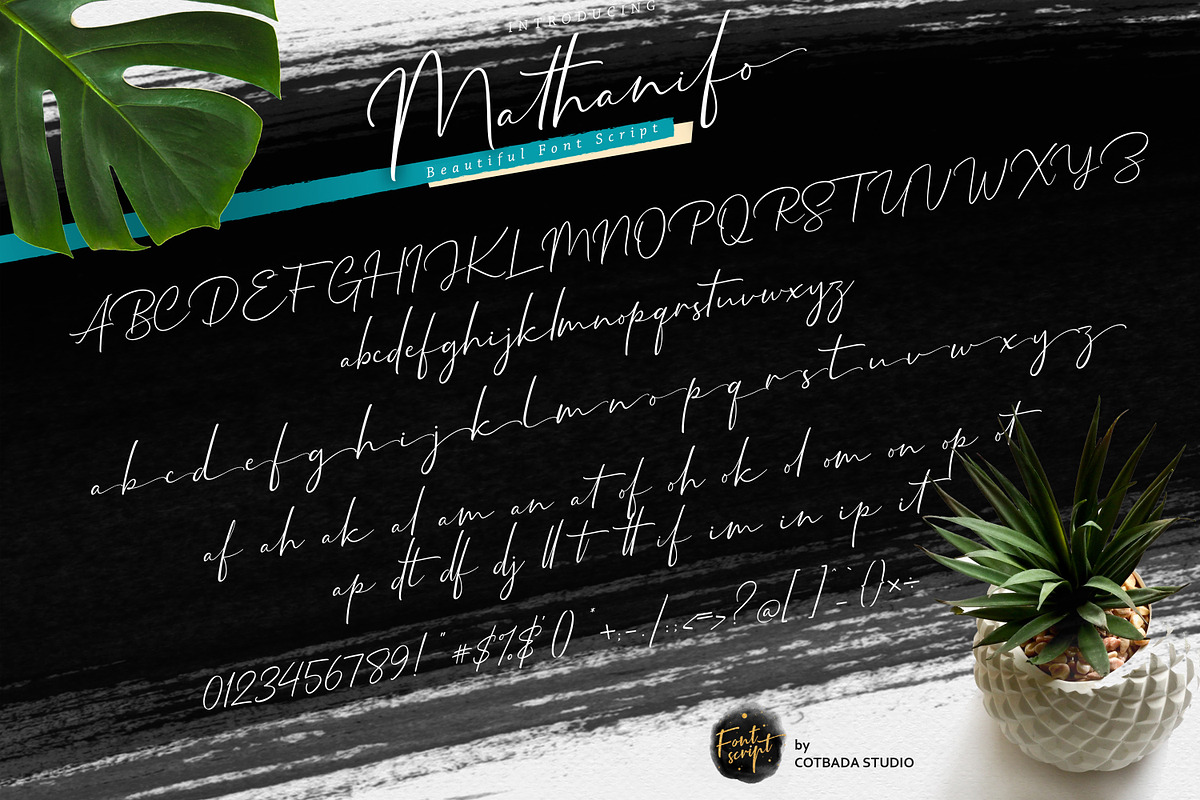 INTRODUCING
Mathanifo
Beautiful Font Script
ABCDEFGHIJKLMNOPQRSTUVWXYZ
abcdefghijklmnopqrstuvwxyz
abcdefghijklmnopqrstuvwxyz
af ah ak al am an at of oh ok ol om on op ot
ap dt df dj ll t tt if im in ip it
0123456789! " #$%$' () * +,-./:;<=>?@[ ]^`-{}×÷
Font script
by
COTBADA STUDIO